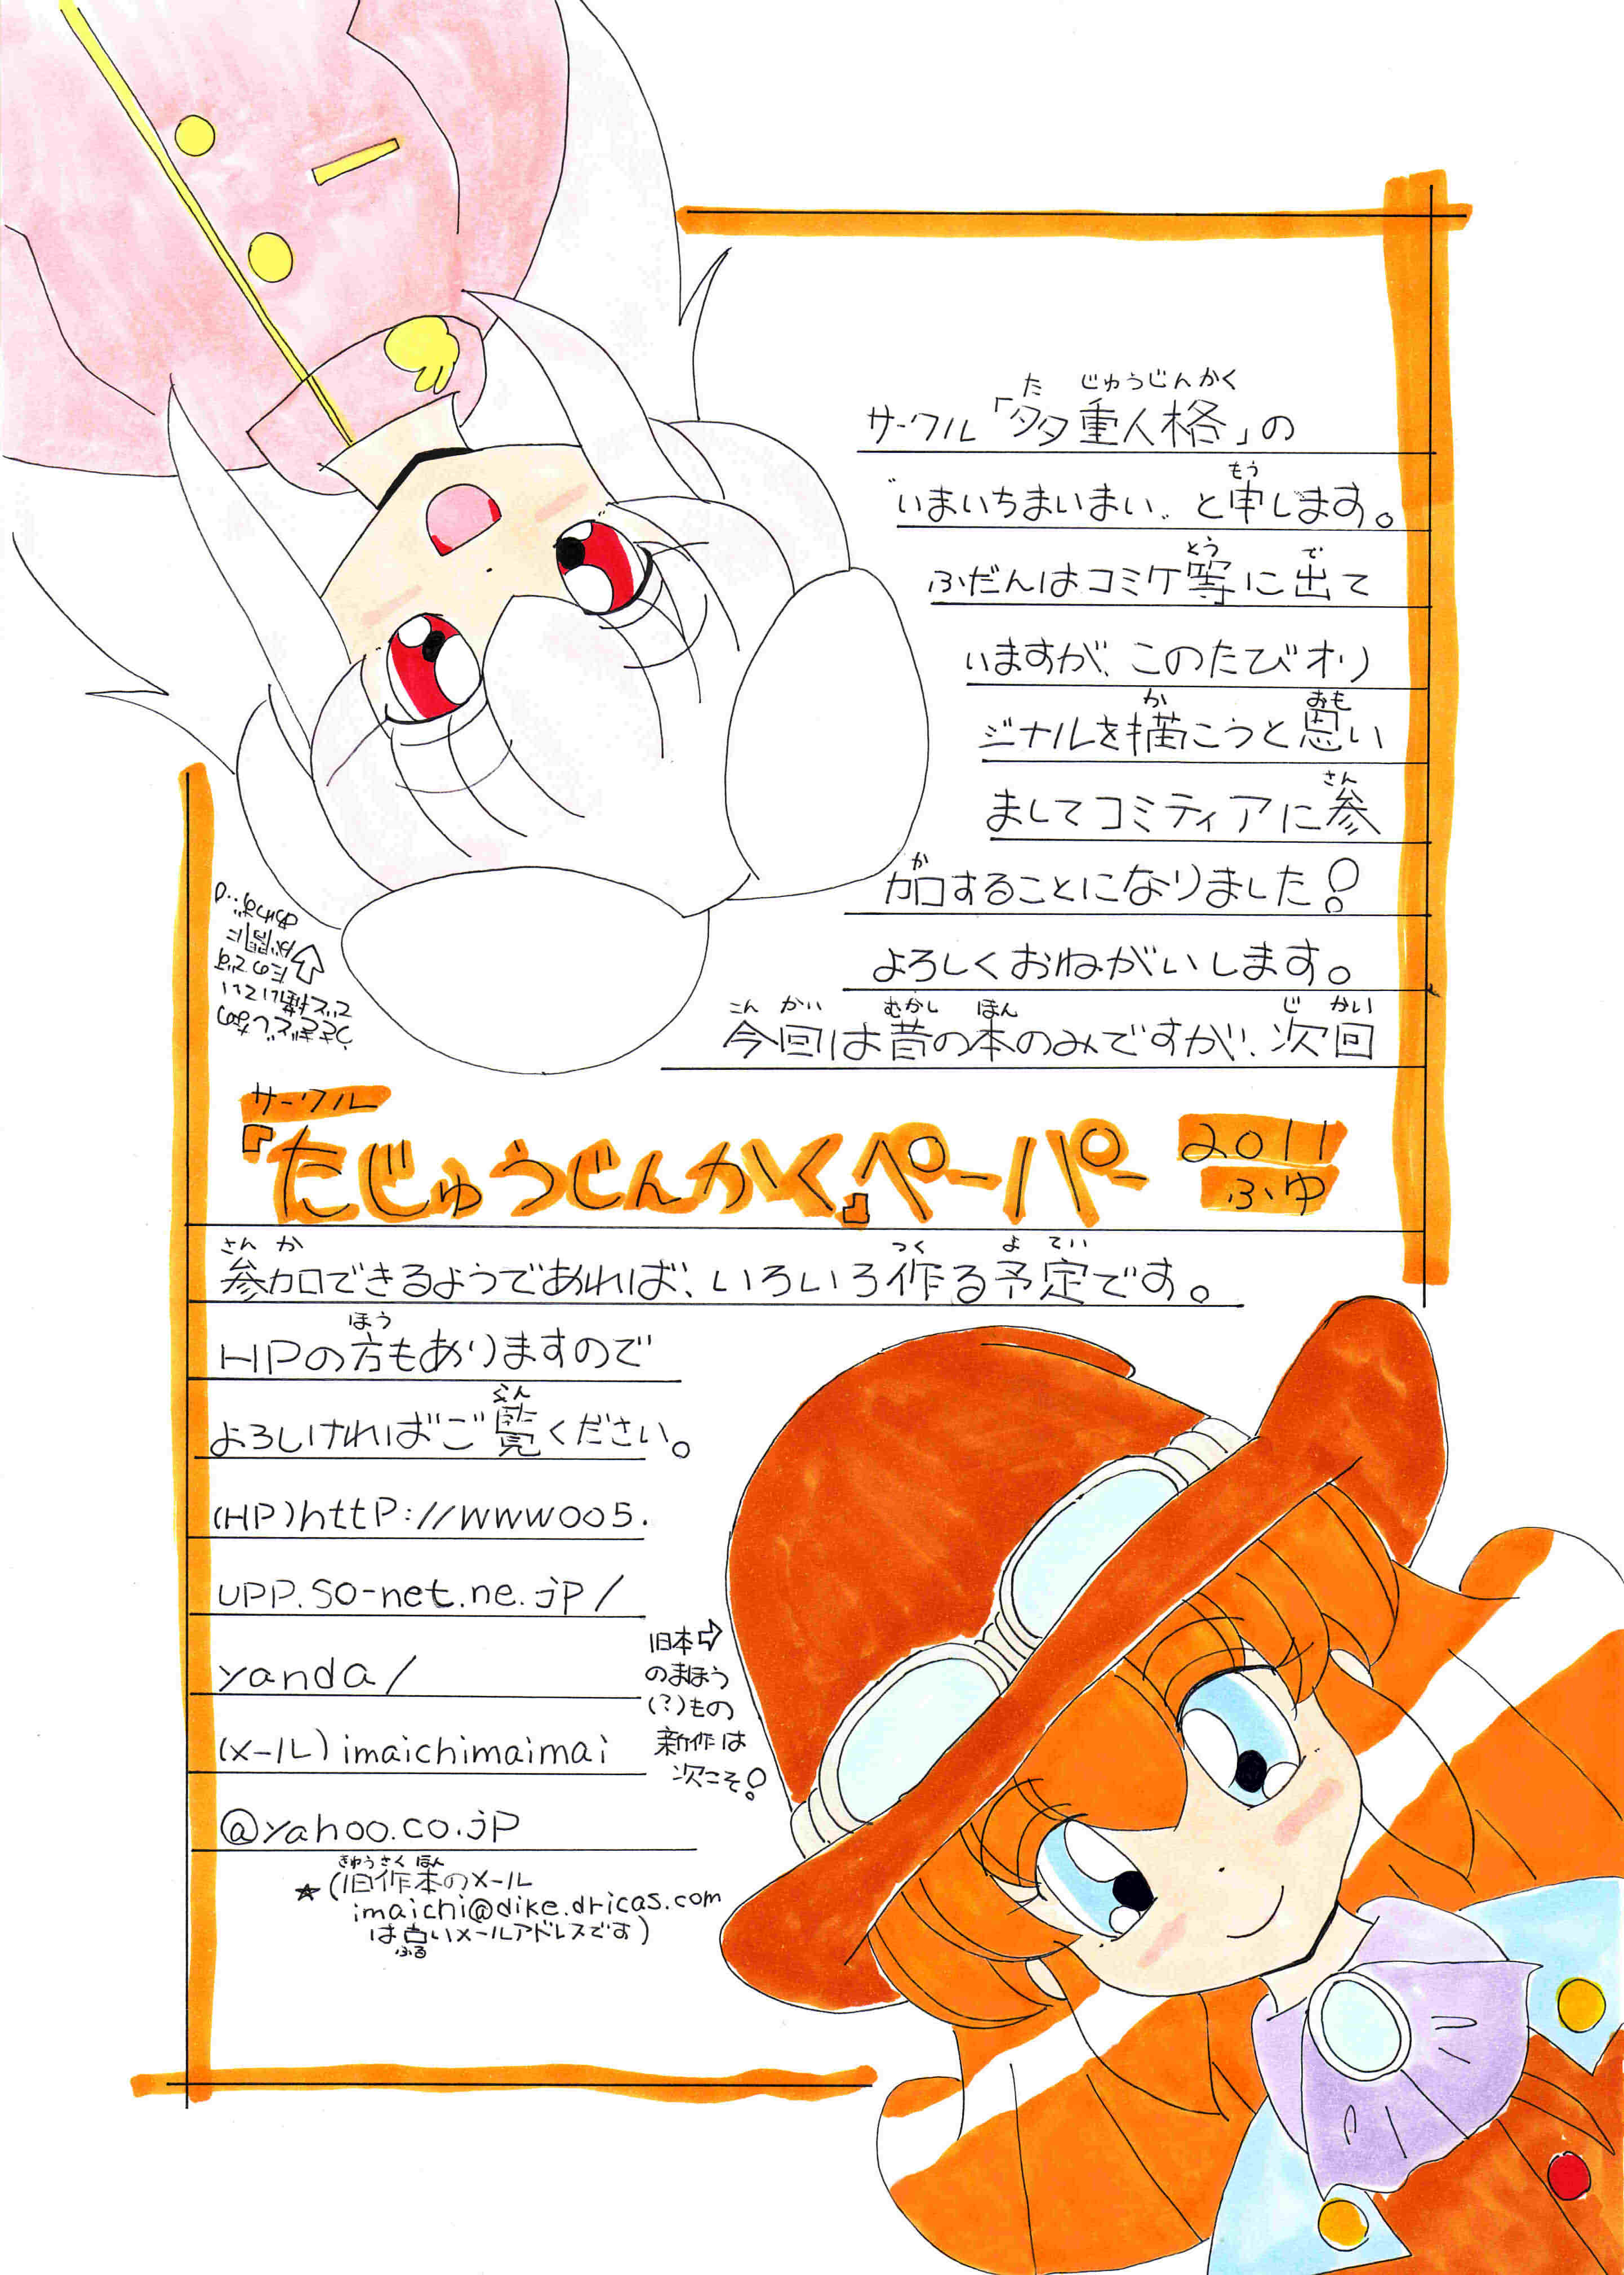 サークル「多重人格」の
たじゅうじんかく
“いまいちまいまい〟と申します。
もう
ふだんはコミケ等に出て
とう で
いますが、このたびオリ
ジナルを描こうと思い
か おも
ましてコミティアに参
さん
加することになりました!
か
よろしくおねがいします。
今回は昔の本のみですが、次回
こんかい むかし ほん じかい
サークル
『たじゅうじんかく』ペーパー
2011
ふゆ
参加できるようであれば、いろいろ作る予定です。
さんか つく よてい
HPの方もありますので
ほう
よろしければご覧ください。
らん
(HP)http://www005.
upp.so-net.ne.jp/
yanda/
(メール)imaichimaimai
@yahoo.co.jp
★(旧作本のメール
きゅうさくほん
imaichi@dike.dricas.com
は古いメールアドレスです)
ふる
旧本⇨
のまほう
(?)もの
新作は
次こそ!